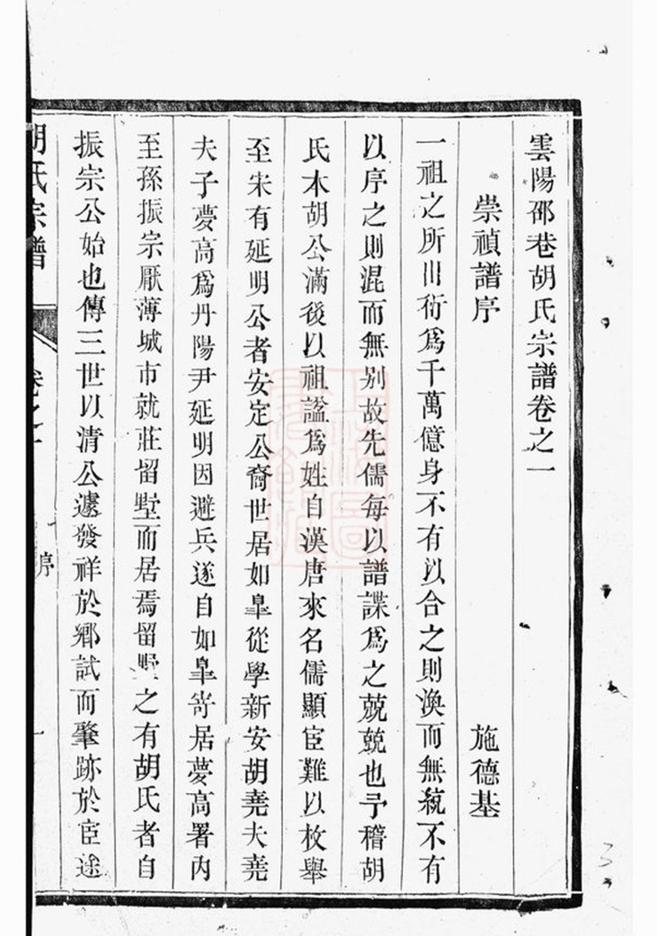 雲陽邵巷胡氏宗譜卷之一
崇禎譜序 施德基
一祖之所衍爲千萬億身不有以合之則渙而無統不有
以序之則混而無别故先儒每以譜諜爲之兢兢也予稽胡
氏本胡公滿後以祖諡爲姓自漢唐來名儒顯宦難以枚舉
至宋有延明公者安定公裔世居如臯從學新安胡堯夫堯
夫子夢高爲丹陽尹延明因避兵遂自如臯寄居夢高署内
至孫振宗厭薄城市就莊留墅而居焉留墅之有胡氏者自
振宗公始也傳三世以清公遽發祥於鄉試而肇跡於宦途
胡氏宗譜 卷之一 序 一